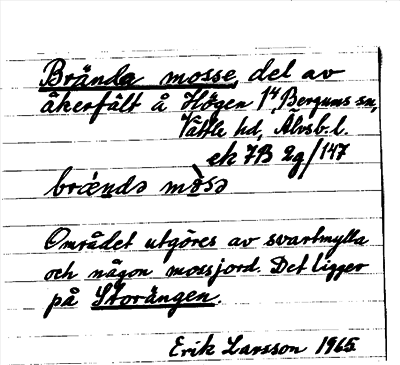 Brända mosse, del av
åkerfält å Högen 1⁴, Bergums sn,
Vättle hd, Älvsb. l.
ek 7B 2g/147
brǽndə mòsə
Området utgöres av svartmylla
och någon mossjord. Det ligger
på Storängen.
Erik Larsson 1965